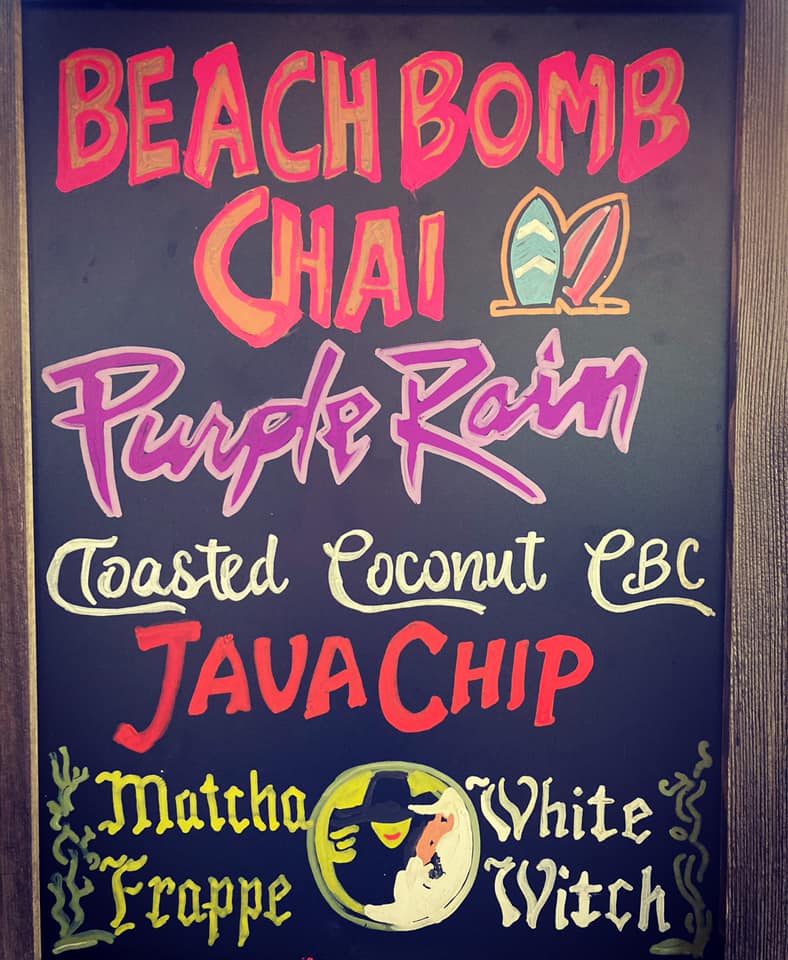 BEACH BOMB
CHAI
Purple Rain
Toasted Coconut CBC
JAVA CHIP
Matcha
Frappe
White
Witch